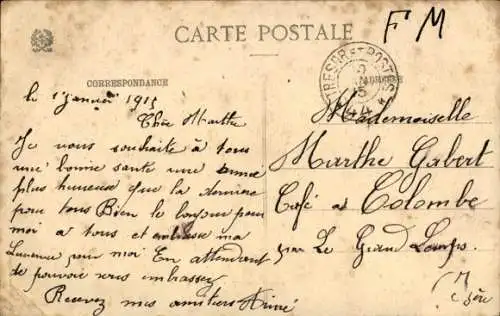 CARTE POSTALE
F M
CORRESPONDANCE
TRESOR ET POSTES
le 1 janvier 1915
Chère Marthe
Je vous souhaite à tous
une bonne santé une année
plus heureuse que la dernière
pour tous Bien le bonjour pour
moi a tous et embrasse ma
Laurence pour moi En attendant
de pouvoir vous embrasser
Recevez mes amitiers Aimé
Mademoiselle
Marthe Gabert
Café à Colombe
par Le Grand Lemps
Isère